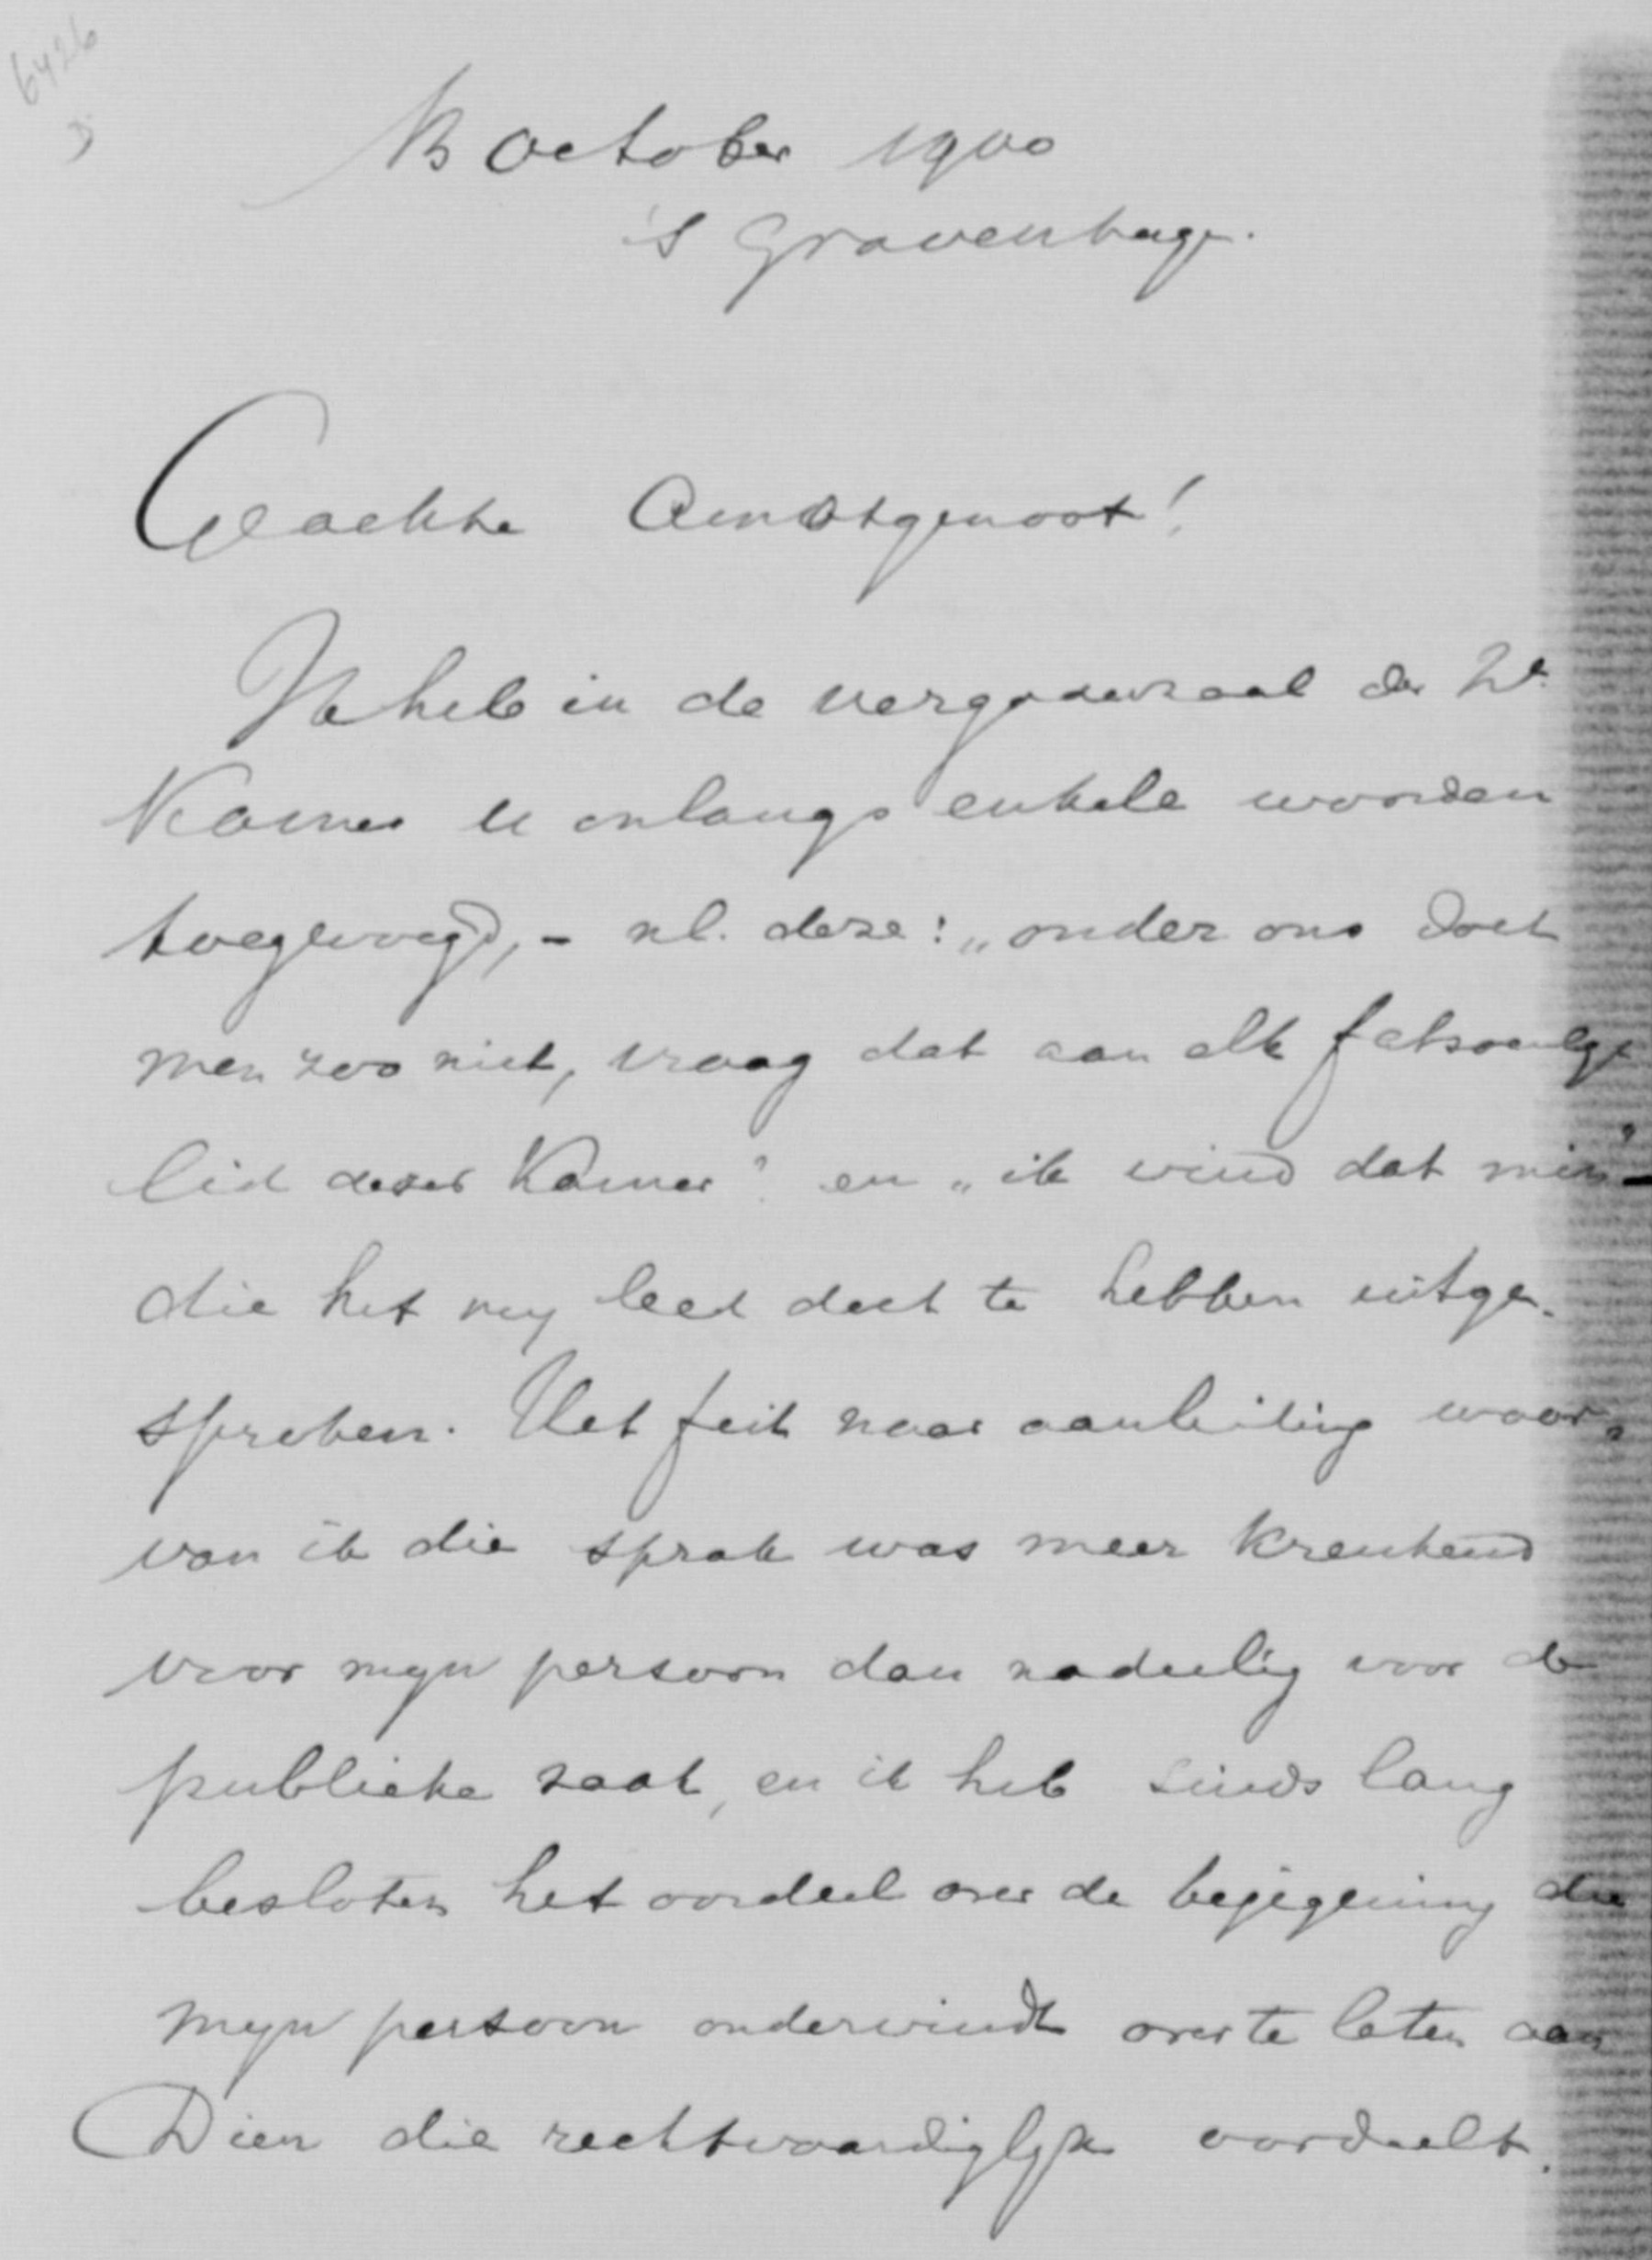 6426
13 October 1900
's Gravenhage.
Geachte Ambtgenoot!
Ik heb in de vergaderzaal der IIe
Kamer u onlangs enkele woorden
toegevoegd, - nl. deze: „onder ons doet
men zoo niet, vraag dat aan elk fatsoenlijk
lid dezer Kamer" en „ik vind dat min" -
die het my leed deet te hebben uitge-
sproken. Het feit naar aanleiding waar-
van ik die sprak was meer krenkend
voor mijn persoon dan nadeelig voor de
publieke zaak, en ik heb sinds lang
besloten het oordeel over de bejegening die
mijn persoon ondervindt over te laten aan
Dien die rechtvaardiglijk oordeelt.